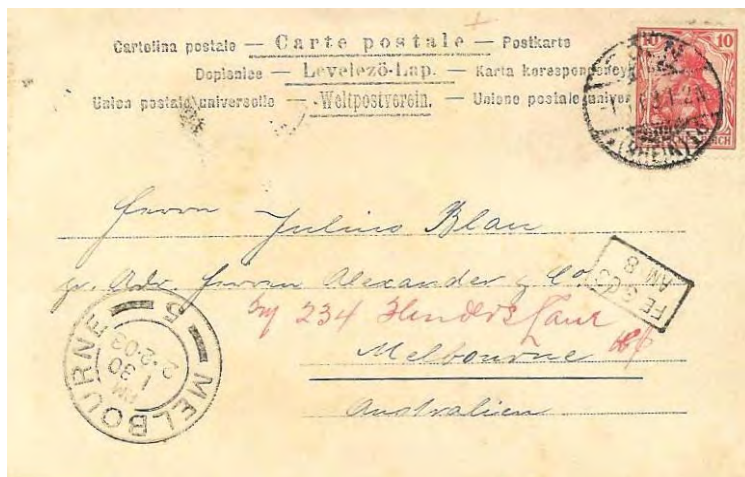 Cartolina postale — Carte postale — Postkarte
Dopisnice — Levelező-Lap. — Karta korespondency
Union postale universelle — Weltpostverein. — Unione postale univer
10 10
REICH
(RHEIN)
Herrn Julius Blau
pr. Adr. Herren Alexander & Co
234 Flinders Lane
Melbourne
Australien
FE 3 03
AM 8
MELBOURNE 5
AM
1 30
2·2·03